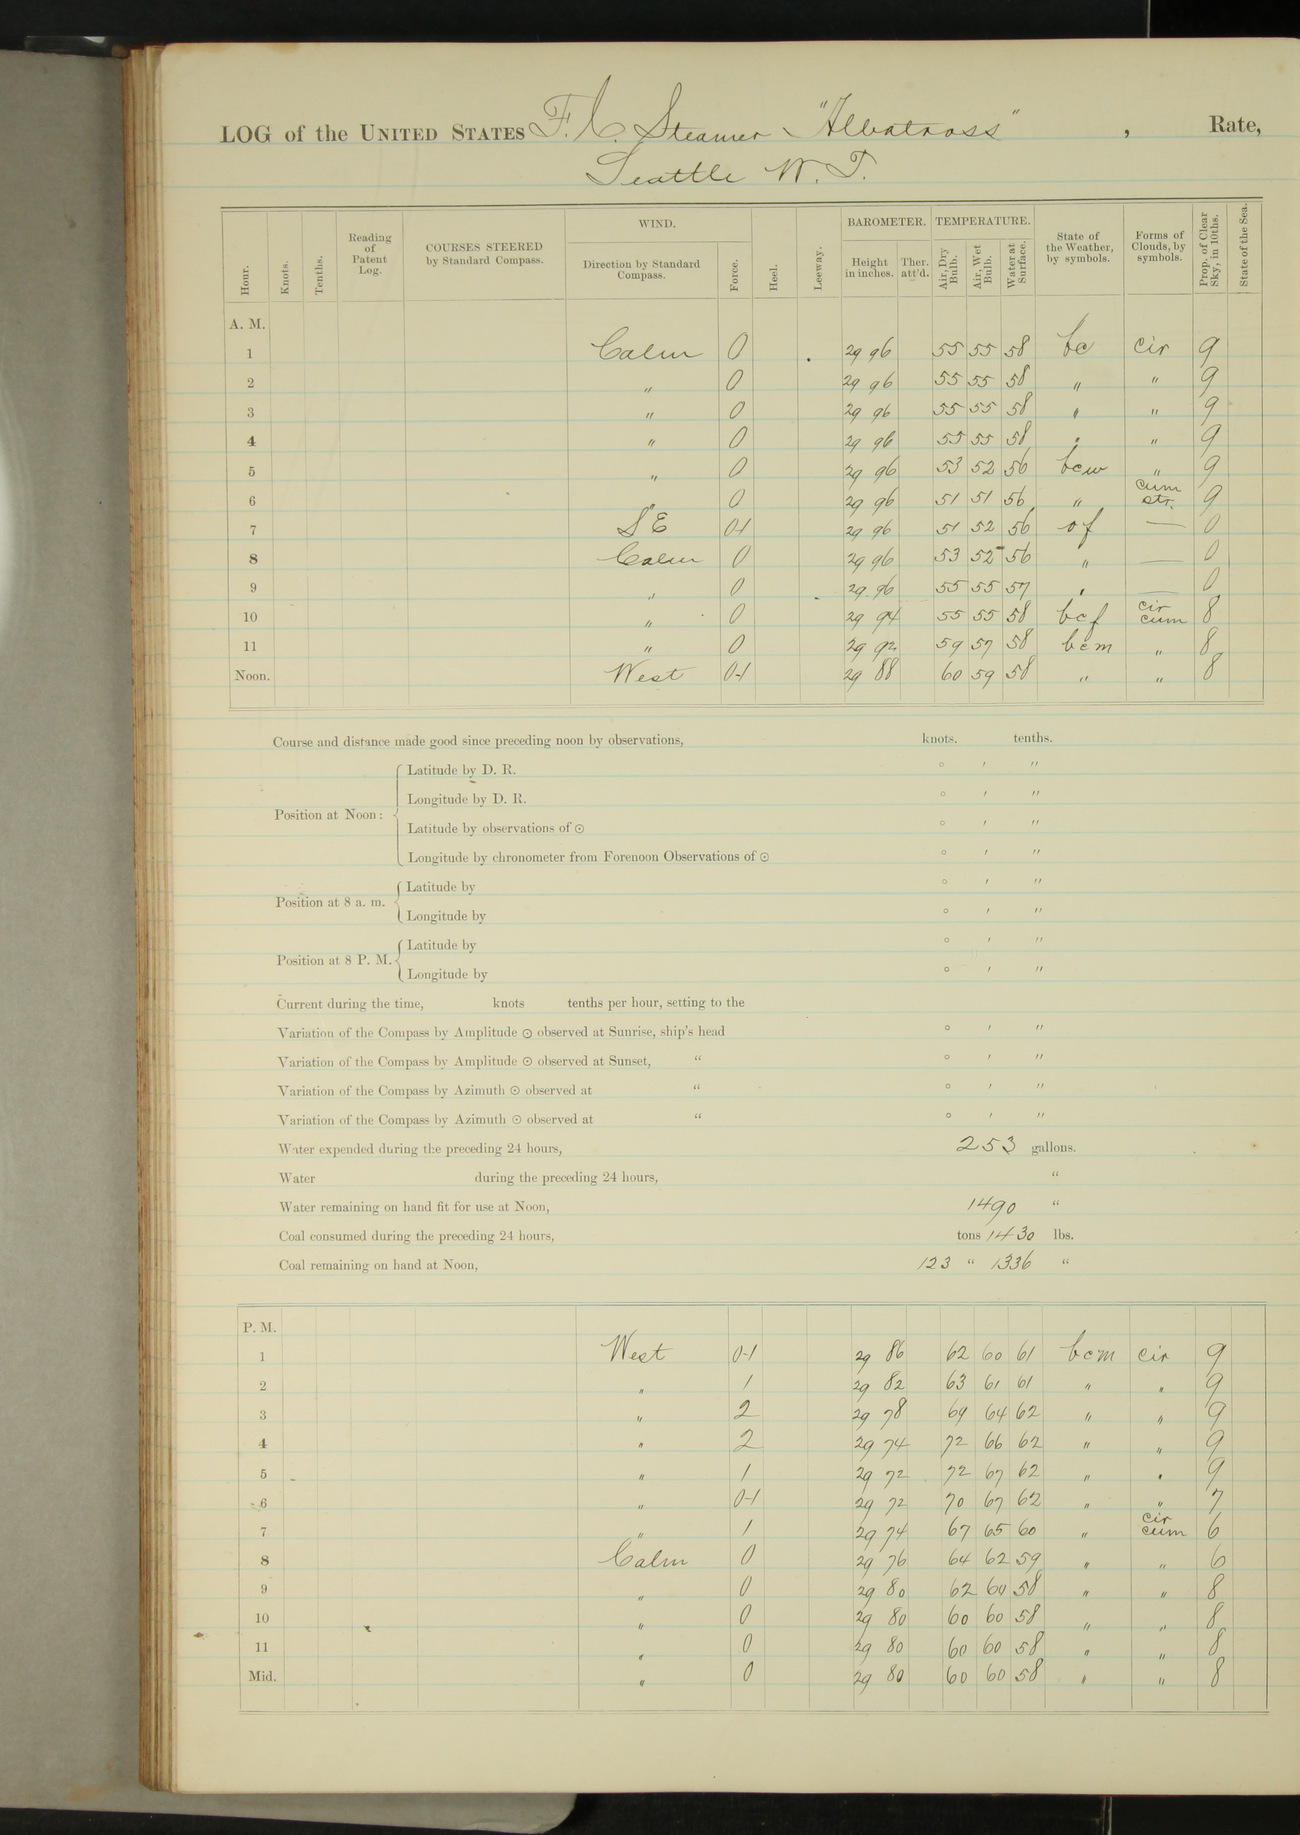 LOG of the UNITED STATES F. C. Steamer "Albatross", Rate,
Seattle W. T.
Hour. Knots. Tenths. Reading of Patent Log. COURSES STEERED by Standard Compass. WIND. Direction by Standard Compass. Force. Heel. Leeway. BAROMETER. Height in inches. Ther. att'd. TEMPERATURE. Air, Dry Bulb. Air, Wet Bulb. Water at Surface. State of the Weather, by symbols. Forms of Clouds, by symbols. Prop. of Clear Sky, in 10ths. State of the Sea.
A. M.
1 Calm 0 29 96 55 55 58 bc cir 9
2 " 0 29 96 55 55 58 " " 9
3 " 0 29 96 55 55 58 " " 9
4 " 0 29 96 55 55 58 " " 9
5 " 0 29 96 53 52 56 bcw " 9
6 " 0 29 96 51 51 56 " cum str. 9
7 SE 0-1 29 96 51 52 56 of — 0
8 Calm 0 29 96 53 52 56 " — 0
9 " 0 29 96 55 55 57 " — 0
10 " 0 29 94 55 55 58 bcf cir cum 8
11 " 0 29 92 59 57 58 bcm " 8
Noon. West 0-1 29 88 60 59 58 " " 8
Course and distance made good since preceding noon by observations, knots. tenths.
Latitude by D. R. ° ′ ″
Longitude by D. R. ° ′ ″
Position at Noon:
Latitude by observations of ⊙ ° ′ ″
Longitude by chronometer from Forenoon Observations of ⊙ ° ′ ″
Latitude by ° ′ ″
Position at 8 a. m.
Longitude by ° ′ ″
Latitude by ° ′ ″
Position at 8 P. M.
Longitude by ° ′ ″
Current during the time, knots tenths per hour, setting to the
Variation of the Compass by Amplitude ⊙ observed at Sunrise, ship's head ° ′ ″
Variation of the Compass by Amplitude ⊙ observed at Sunset, " ° ′ ″
Variation of the Compass by Azimuth ⊙ observed at " ° ′ ″
Variation of the Compass by Azimuth ⊙ observed at " ° ′ ″
Water expended during the preceding 24 hours, 253 gallons.
Water during the preceding 24 hours, "
Water remaining on hand fit for use at Noon, 1490 "
Coal consumed during the preceding 24 hours, tons 1430 lbs.
Coal remaining on hand at Noon, 123 " 1336 "
P. M.
1 West 0-1 29 86 62 60 61 bcm cir 9
2 " 1 29 82 63 61 61 " " 9
3 " 2 29 78 69 64 62 " " 9
4 " 2 29 74 72 66 62 " " 9
5 " 1 29 72 72 67 62 " " 9
6 " 0-1 29 72 70 67 62 " " 7
7 " 1 29 74 67 65 60 " cir cum 6
8 Calm 0 29 76 64 62 59 " " 6
9 " 0 29 80 62 60 58 " " 8
10 " 0 29 80 60 60 58 " " 8
11 " 0 29 80 60 60 58 " " 8
Mid. " 0 29 80 60 60 58 " " 8